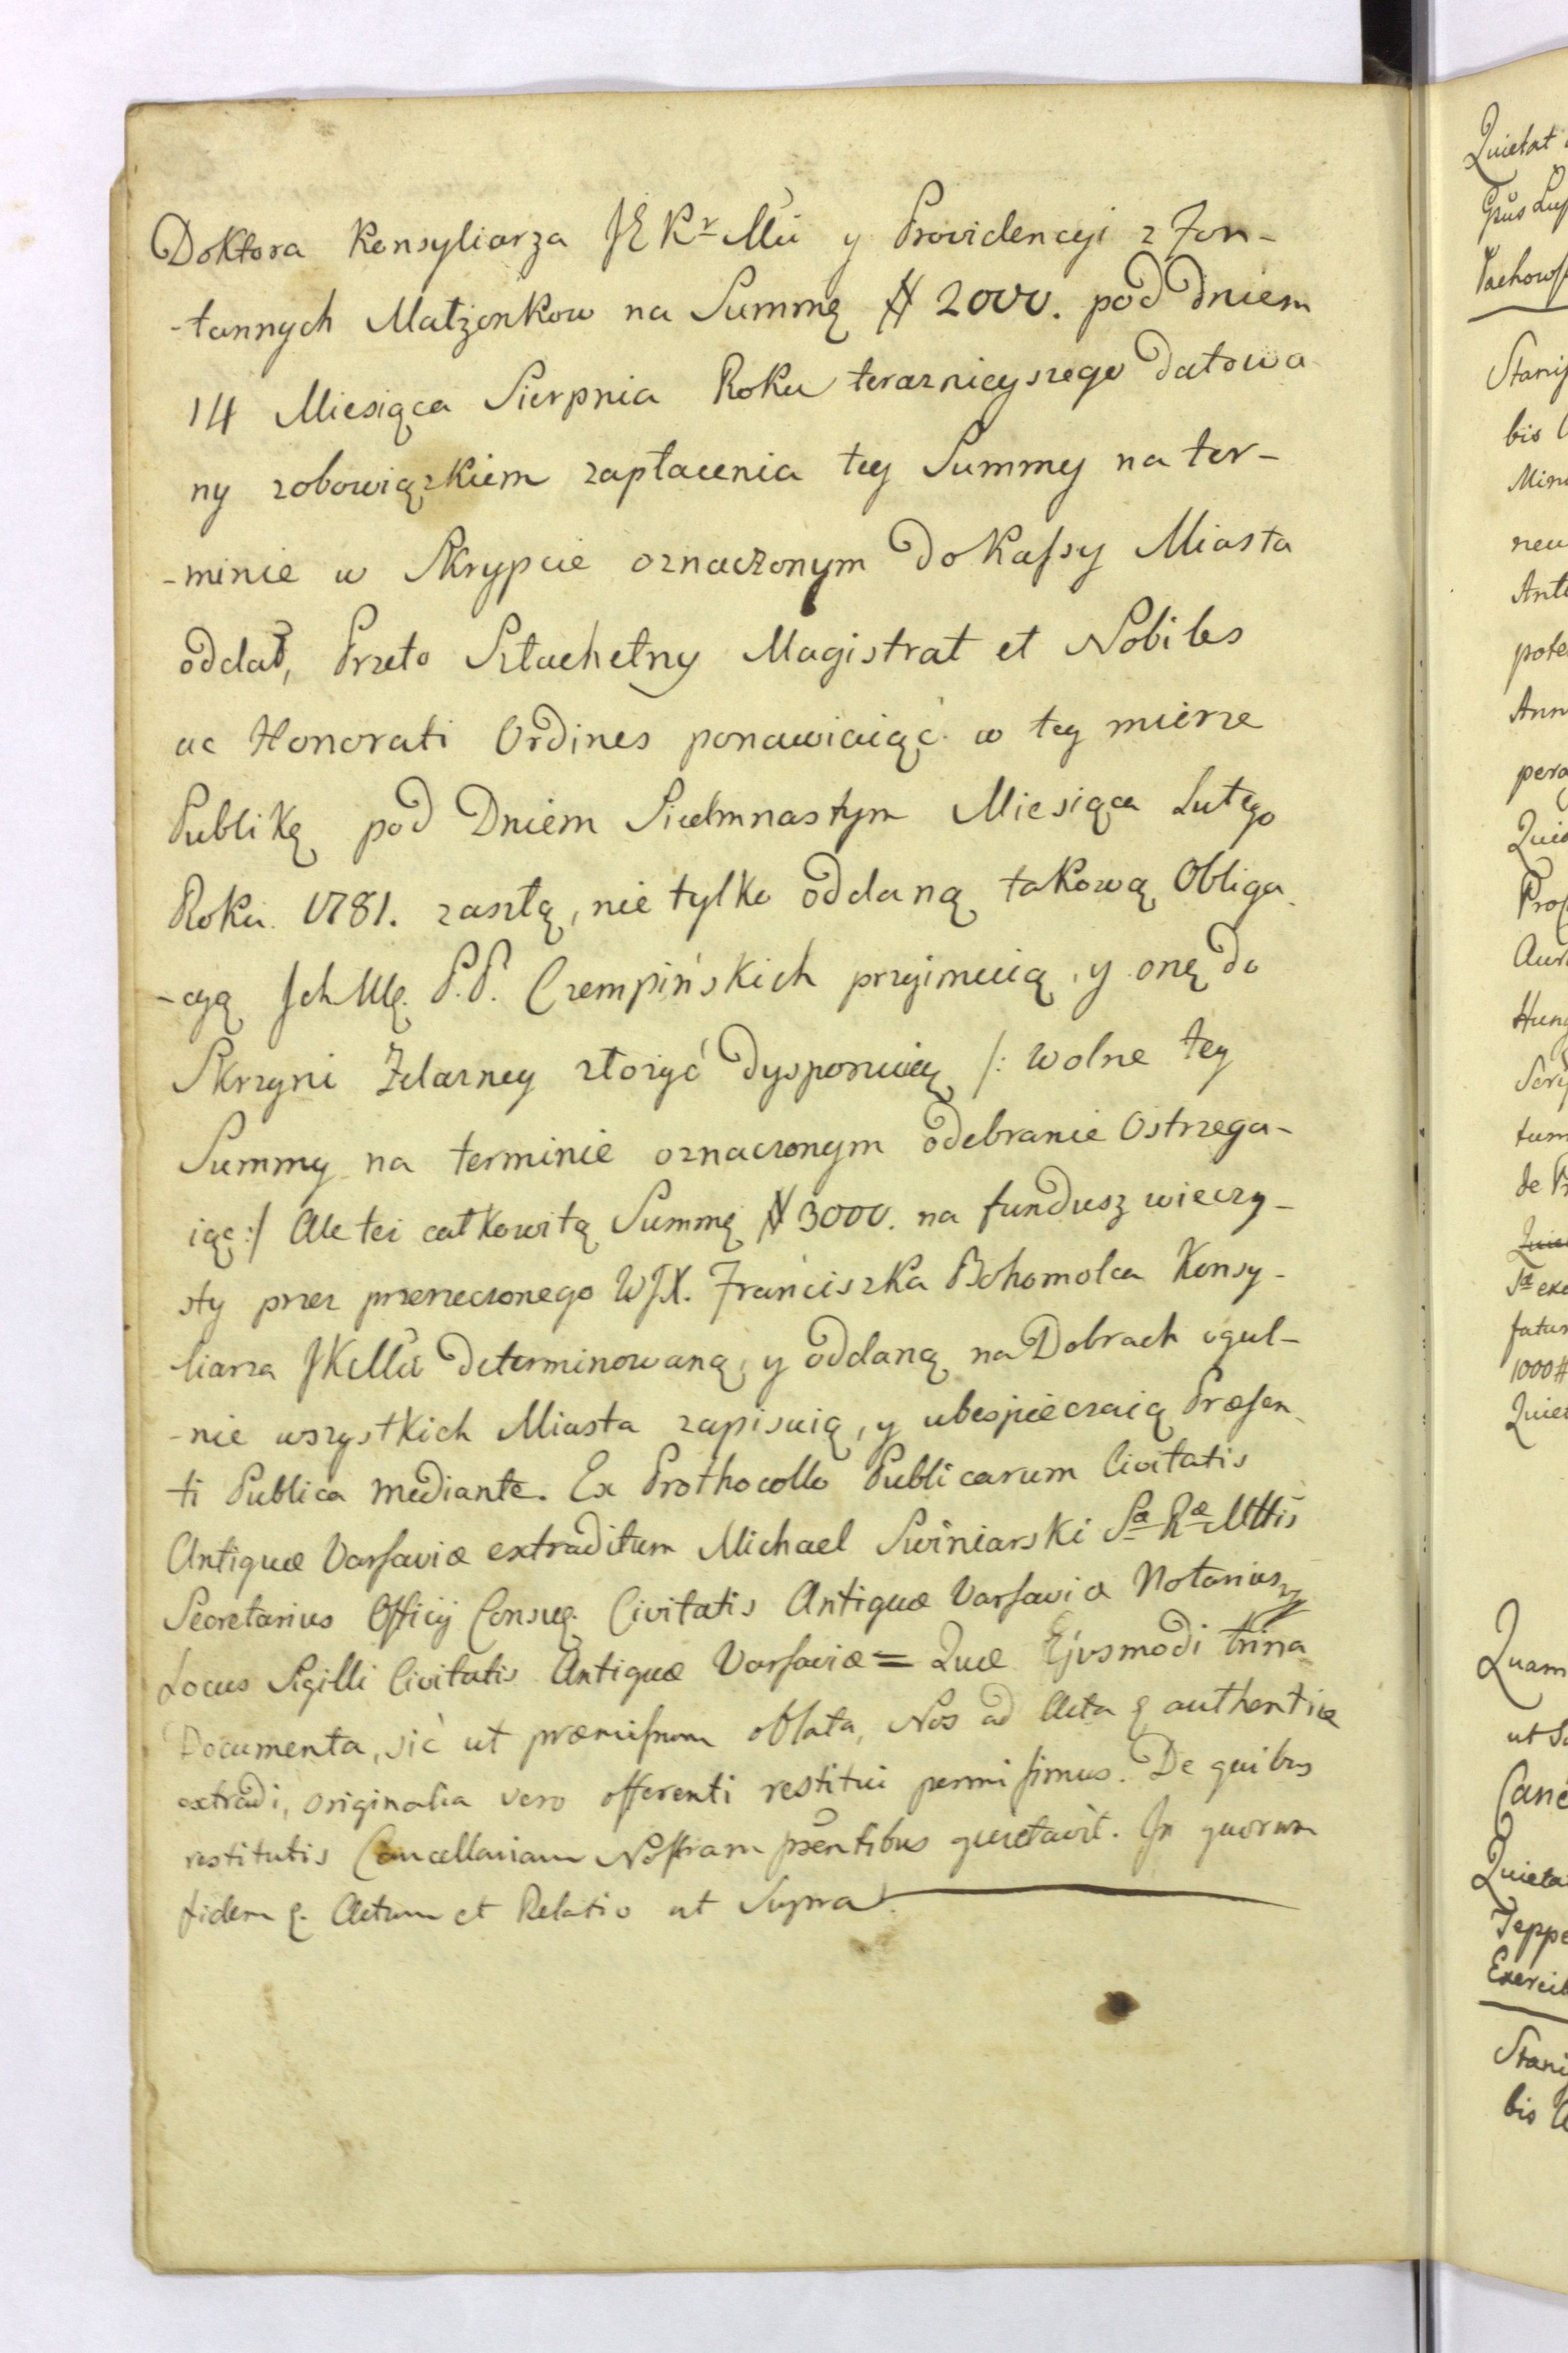 Doktora Konsyliarza JE Kr Mci y Providencyi z Fon-
-tannych Małżonkow na Summę # 2000. pod dniem
14 Miesiąca Sierpnia Roku teraznieyszego datowa
ny zobowiązkiem zapłacenia tey Summy na ter-
-minie w Skrypcie oznaczonym do Kassy Miasta
oddał, Przeto Szlachetny Magistrat et Nobiles
ac Honorati Ordines ponawiaiąc w tey mierze
Publikę pod Dniem Siedmnastym Miesiąca Lutego
Roku 1781. zaszłą, nie tylko oddaną takową Obliga
-cyą Ich Mę. P.P. Czempińskich przyimuią, y onę do
Skrzyni Zelazney złożyć dysponuią /: wolne tey
Summy na terminie oznaczonym odebranie Ostrzega-
iąc :/ Ale tei całkowitą Summę # 3000. na fundusz wieczy-
sty przez przerzeczonego WJX. Franciszka Bohomolca Konsy-
-liarza JKMci determinowaną, y oddaną na Dobrach ogul-
-nie wszystkich Miasta zapisuią, y ubespieczaią Præsen
ti Publica mediante. Ex Prothocollo Publicarum Civitatis
Antiquæ Varsaviæ extraditum Michael Swiniarski Sæ Ræ Mttis
Secretarius Officij Consuę. Civitatis Antiquæ Varsaviæ Notarius
Locus Sigilli Civitatis Antiquæ Varsaviæ = Quæ Ejusmodi trina
Documenta, sic ut præmissum oblata, Nos ad Acta ę authentice
extradi, originalia vero offerenti restitui permisimus. De quibus
restitutis Cancellariam Nostram pñtibus quietavit. In quorum
fidem ę. Actum et Relatio ut Supra.
Quietat
Stani
bis
Quam
Stani
bis